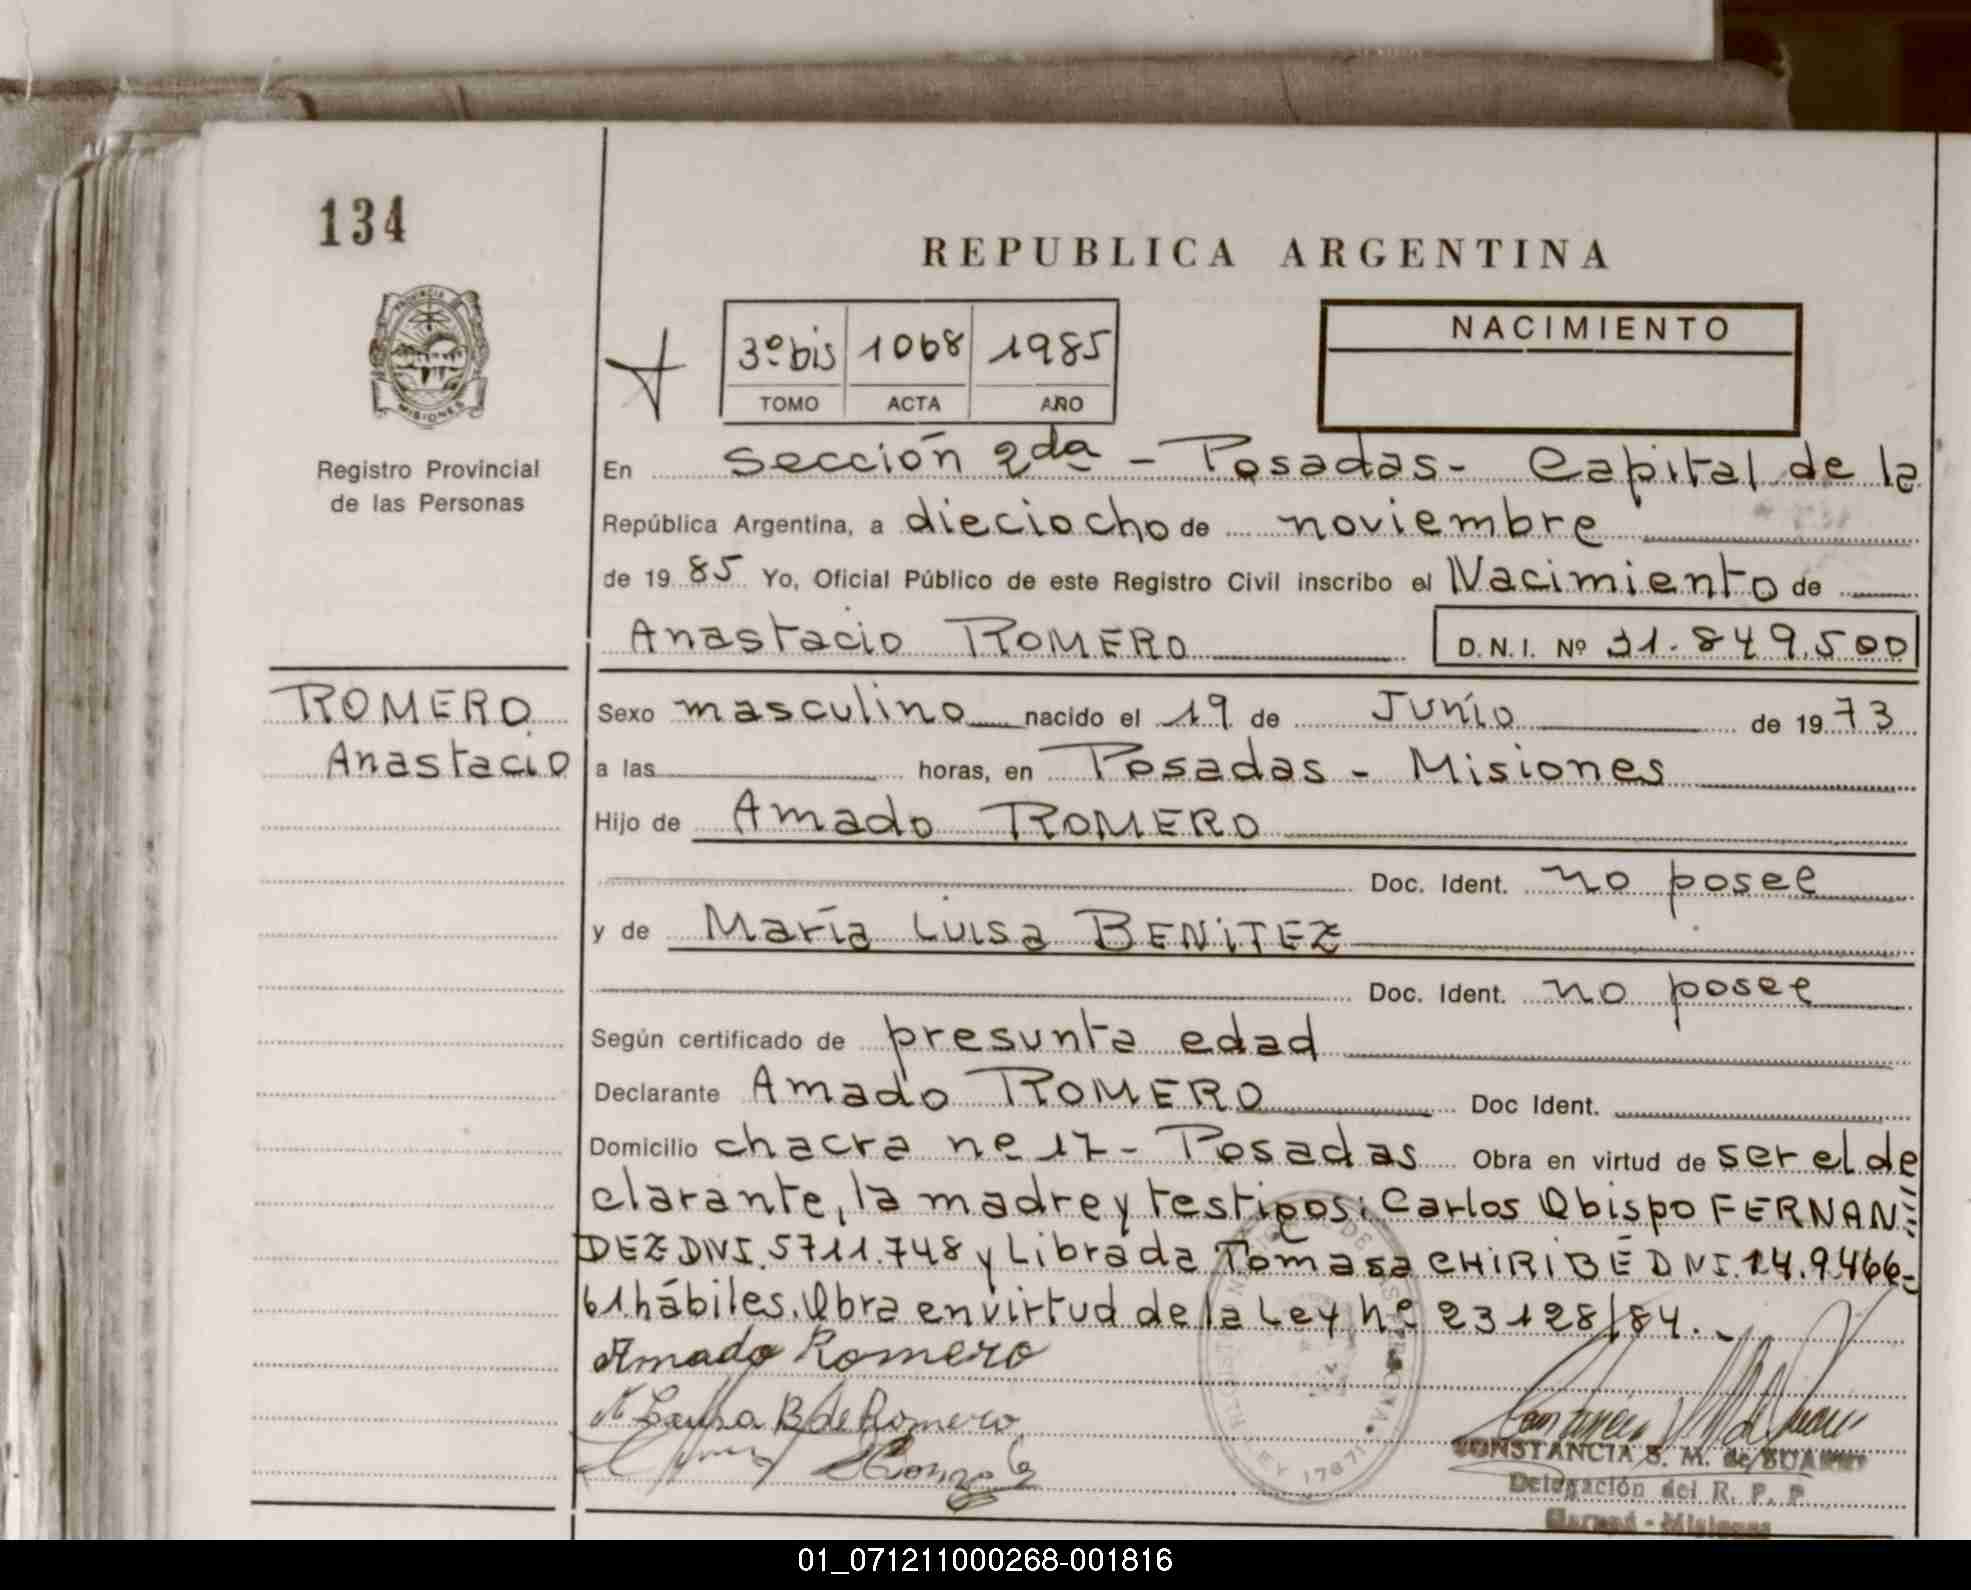 134
REPUBLICA ARGENTINA
PROVINCIA
MISIONES
3º bis 1068 1985
TOMO ACTA AÑO
NACIMIENTO
Registro Provincial
de las Personas
En Sección 2da - Posadas - Capital de la
República Argentina, a dieciocho de noviembre
de 19 85 Yo, Oficial Público de este Registro Civil inscribo el Nacimiento de
Anastacio ROMERO D.N.I. Nº 31.849.500
ROMERO
Anastacio
Sexo masculino nacido el 19 de Junio de 19 73
a las horas, en Posadas - Misiones
Hijo de Amado ROMERO
Doc. Ident. no posee
y de María Luisa BENITEZ
Doc. Ident. no posee
Según certificado de presunta edad
Declarante Amado ROMERO Doc Ident.
Domicilio chacra nº 17 - Posadas Obra en virtud de ser el de
clarante, la madre y testigos: Carlos Obispo FERNAN=
DEZ DNI. 5711.748 y Librada Tomasa CHIRIBÉ DNI. 14.9466-
61 hábiles. Obra en virtud de la Ley nº 23128/84.
Amado Romero
M Luisa B de Romero
CONSTANCIA S. M. de SUAREZ
Delegación del R. P. P
Garupá - Misiones
LEY 17671
01_071211000268-001816